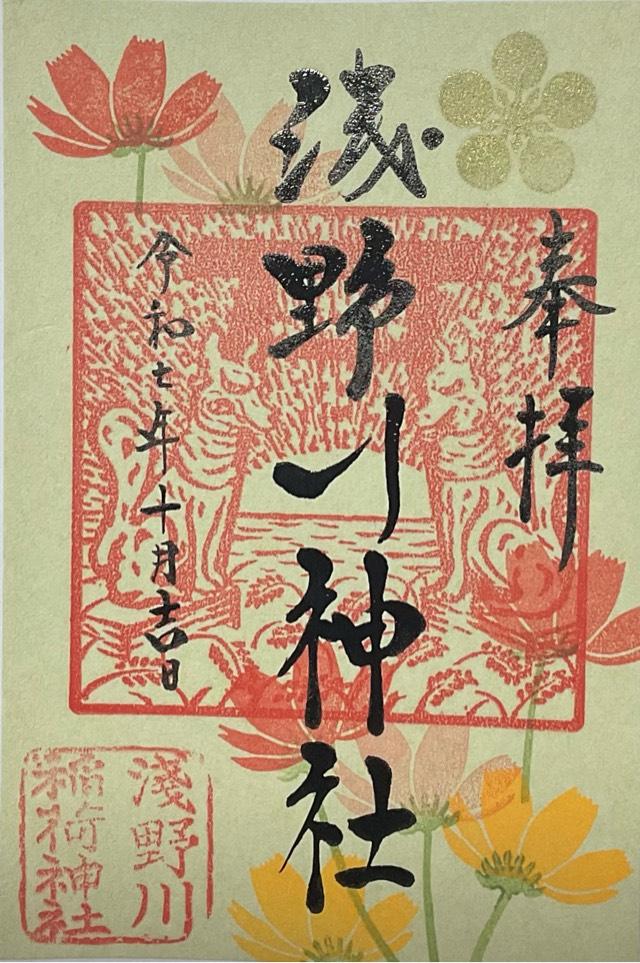 奉拝
淺野川神社
令和七年十月吉日
淺野川
稲荷神社